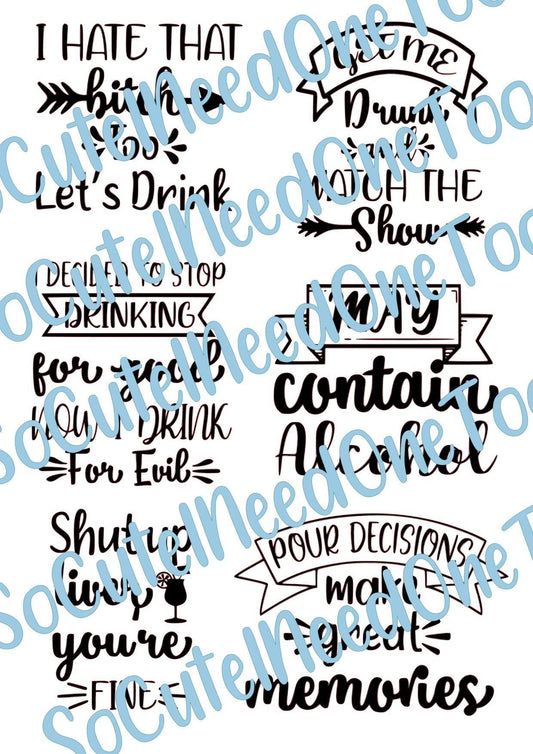 I HATE THAT
bitch
too
Let's Drink
GET ME
Drunk
and
WATCH THE
Show
I DECIDED TO STOP
DRINKING
for good
NOW I DRINK
For Evil
MAY
contain
Alcohol
Shut up
liver
you're
FINE
POUR DECISIONS
make
great
memories
SoCuteINeedOneToo
SoCuteINeedOneToo
SoCuteINeedOneToo
SoCuteINeedOneToo